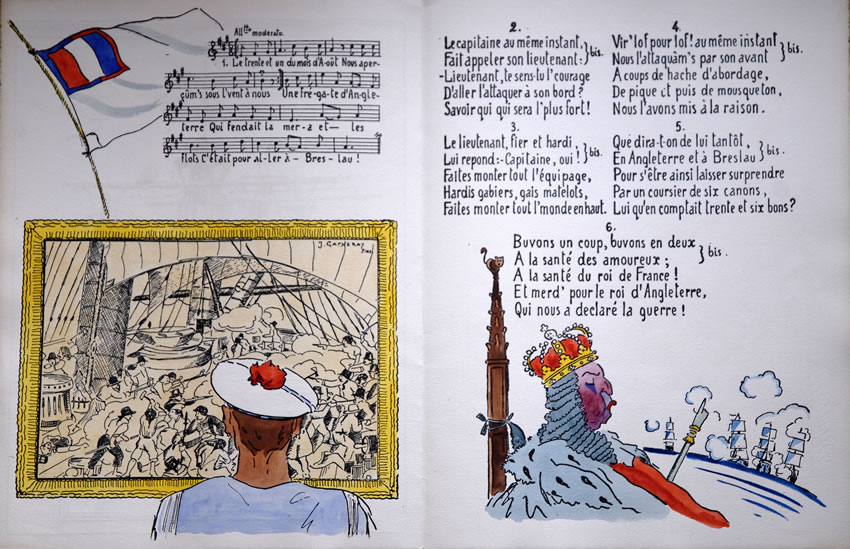 All.tto moderato.
1. Le trente et un du mois d'Août Nous aper-
çûm's sous l'vent à nous Une fré-ga-te d'Angle-
terre Qui fendait la mer-a et— les
flots C'était pour al-ler à - Bres - lau !
J. Garneray
2.
Le capitaine au même instant,
Fait appeler son lieutenant: } bis.
-Lieutenant, te sens-tu l'courage
D'aller l'attaquer à son bord ?
Savoir qui qui sera l'plus fort!
3.
Le lieutenant, fier et hardi,
Lui repond:- Capitaine, oui ! } bis.
Faites monter tout l'équipage,
Hardis gabiers, gais matelots,
Faites monter tout l'monde en haut.
4.
Vir' lof pour lof! au même instant
Nous l'attaquâm's par son avant } bis.
A coups de hache d'abordage,
De pique et puis de mousqueton,
Nous l'avons mis à la raison.
5.
Que dira-t-on de lui tantôt,
En Angleterre et à Breslau } bis.
Pour s'être ainsi laisser surprendre
Par un coursier de six canons,
Lui qu'en comptait trente et six bons?
6.
Buvons un coup, buvons en deux,
A la santé des amoureux ; } bis.
A la santé du roi de France !
Et merd' pour le roi d'Angleterre,
Qui nous a declaré la guerre !